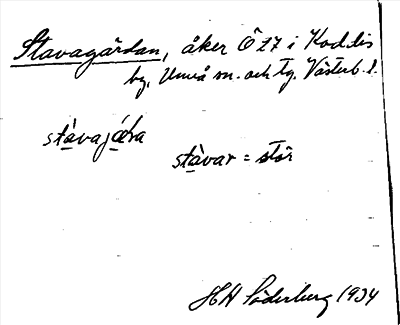 Stavagärdan, åker Ö 27 i Koddis
by, Umeå sn. och tg. Västerb. l.
stàvajǽra
stàvar = stör
HH Söderberg 1934